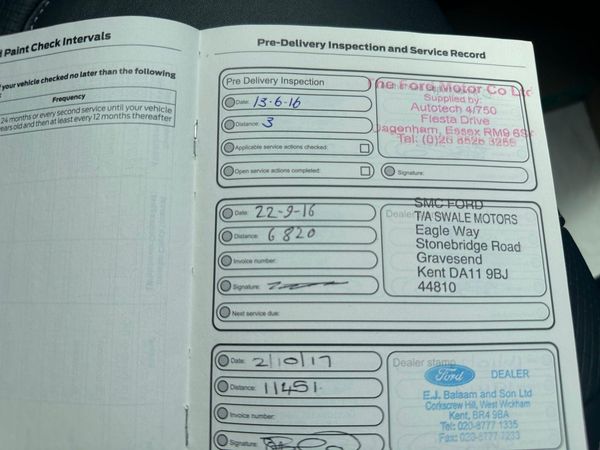 Paint Check Intervals
your vehicle checked no later than the following
Frequency
24 months or every second service until your vehicle
years old and then at least every 12 months thereafter
Pre-Delivery Inspection and Service Record
Pre Delivery Inspection
Date: 13-6-16
Distance: 3
Applicable service actions checked:
Open service actions completed:
The Ford Motor Co Ltd
Supplied by:
Autotech 4/750
Fiesta Drive
Dagenham, Essex RM9 6S
Signature:
Date: 22-9-16
Distance: 6820
Invoice number:
Signature:
Next service due:
Dealer
SMC FORD
T/A SWALE MOTORS
Eagle Way
Stonebridge Road
Gravesend
Kent DA11 9BJ
44810
Date: 2/10/17
Distance: 11451
Invoice number:
Signature:
Dealer stamp
Ford DEALER
E.J. Balaam and Son Ltd
Corkscrew Hill, West Wickham
Kent, BR4 9BA
Tel: 020-8777 1335
Fax: 020-8777 7233